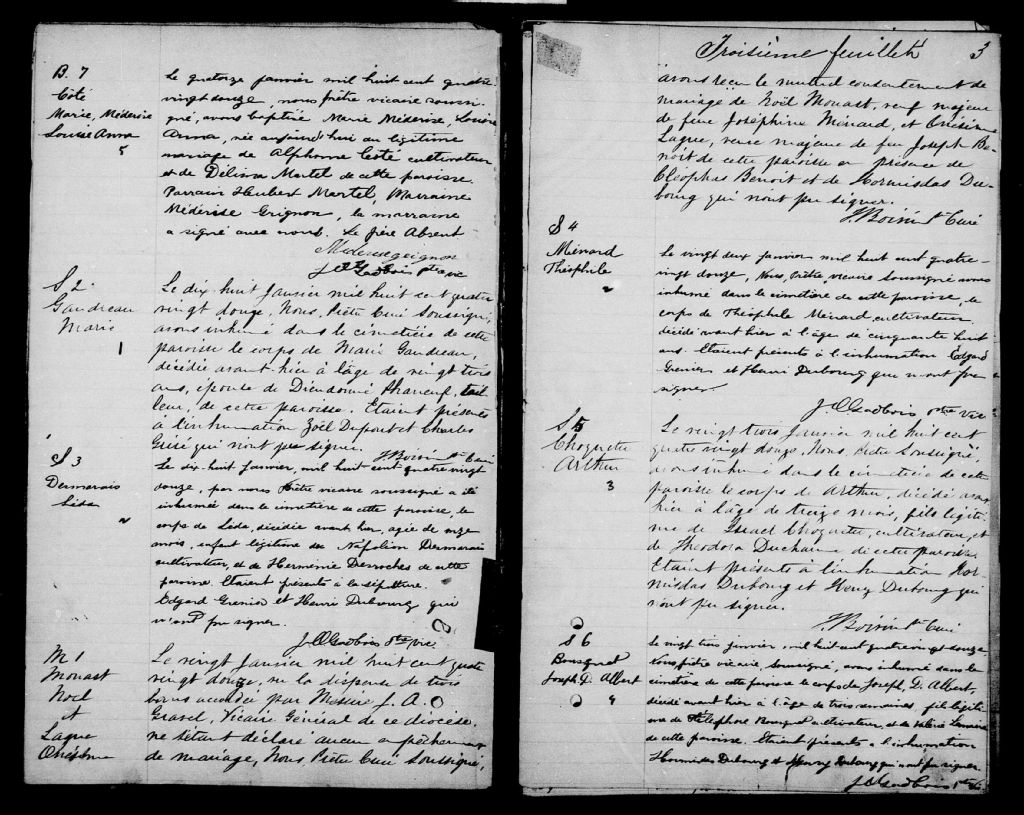 B. 7
Côté
Marie, Médérise
Louise Anna
5
Le quatorze janvier mil huit cent quatre
vingt douze, nous prêtre vicaire soussi
gné, avons baptisé Marie Médérise, Louise
Anna, née aujourd'hui du légitime
mariage de Alphonse Côté cultivateur
et de Délima Martel de cette paroisse.
Parrain Hubert Martel, Marraine
Médérise Grignon, la marraine
a signé avec nous. Le père Absent.
Mederise grignon
J O Gadbois ptre vic
S 2
Gaudreau
Marie
1
Le dix-huit Janvier mil huit cent quatre
vingt douze, Nous, Prêtre Curé Soussigné,
avons inhumé dans le cimetière de cette
paroisse le corps de Marie Gaudreau,
décédée avant-hier à l'âge de vingt trois
ans, épouse de Dieudonné Phaneuf, tail
leur, de cette paroisse. Etaient présents
à l'inhumation Zoël Dupont et Charles
qui n'ont pu signer.
Ptre Curé
S 3
Desmarais
Léda
2
Le dix-huit janvier, mil huit cent quatre vingt
douze, par nous Prêtre vicaire soussigné a été
inhumée dans le cimetière de cette paroisse, le
corps de Léda, décédée avant hier, agée de onze
mois, enfant légitime de Napoléon Desmarais
cultivateur, et de Herménie Desroches de cette
paroisse. Etaient présents à la sépulture.
Edgard Grenier et Henri Dubourg qui
n'ont pu signer.
J O Gadbois ptre vic.
M 1
Monast
Noël
et
Laque
Onésime
Le vingt Janvier mil huit cent quatre
vingt douze, vu la dispense de trois
bans accordée par Messire J. A.
Gravel, Vicaire Général de ce diocèse,
ne s'étant déclaré aucun empêchement
de mariage, Nous, Prêtre Curé Soussigné,
Troisième feuillet
3
avons reçu le mutuel consentement de
mariage de Noël Monast, veuf majeur
de feue Joséphine Ménard, et Onésime
Laque, veuve majeure de feu Joseph Be-
noit de cette paroisse en présence de
Cléophas Benoit et de Hormisdas Du-
bourg qui n'ont pu signer.
Ptre Curé
S 4
Ménard
Théophile
2
Le vingt deux janvier mil huit cent quatre-
vingt douze, Nous, Prêtre, vicaire Soussigné avons
inhumé dans le cimetière de cette paroisse, le
corps de Théophile Ménard, cultivateur
décédé avant hier à l'âge de cinquante huit
ans. Etaient présents à l'inhumation Edgard
Grenier et Henri Dubourg qui n'ont pu
signer.
J O Gadbois ptre vic
S 5
Choquette
Arthur
3
Le vingt trois Janvier mil huit cent
quatre vingt douze, Nous, Prêtre Soussigné,
avons inhumé dans le cimetière de cette
paroisse le corps de Arthur, décédé avant
hier à l'âge de treize mois, fils légiti-
me de Israel Choquette, cultivateur, et
de Théodora Ducharme de cette paroisse.
Etaient présents à l'inhumation Hor-
misdas Dubourg et Henry Dubourg qui
n'ont pu signer.
Ptre Curé
S 6
Bousquet
Joseph D. Albert
4
Le vingt trois janvier, mil huit cent quatre vingt douze
Nous prêtre vicaire, soussigné, avons inhumé dans le
cimetière de cette paroisse le corps de Joseph, D. Albert,
décédé avant hier à l'âge de trois semaines, fils légiti-
me de Télesphore Bousquet cultivateur, et de
de cette paroisse. Etaient présents à l'inhumation
Hormisdas Dubourg et Henry Dubourg qui n'ont pu signer.
J O Gadbois ptre Vic